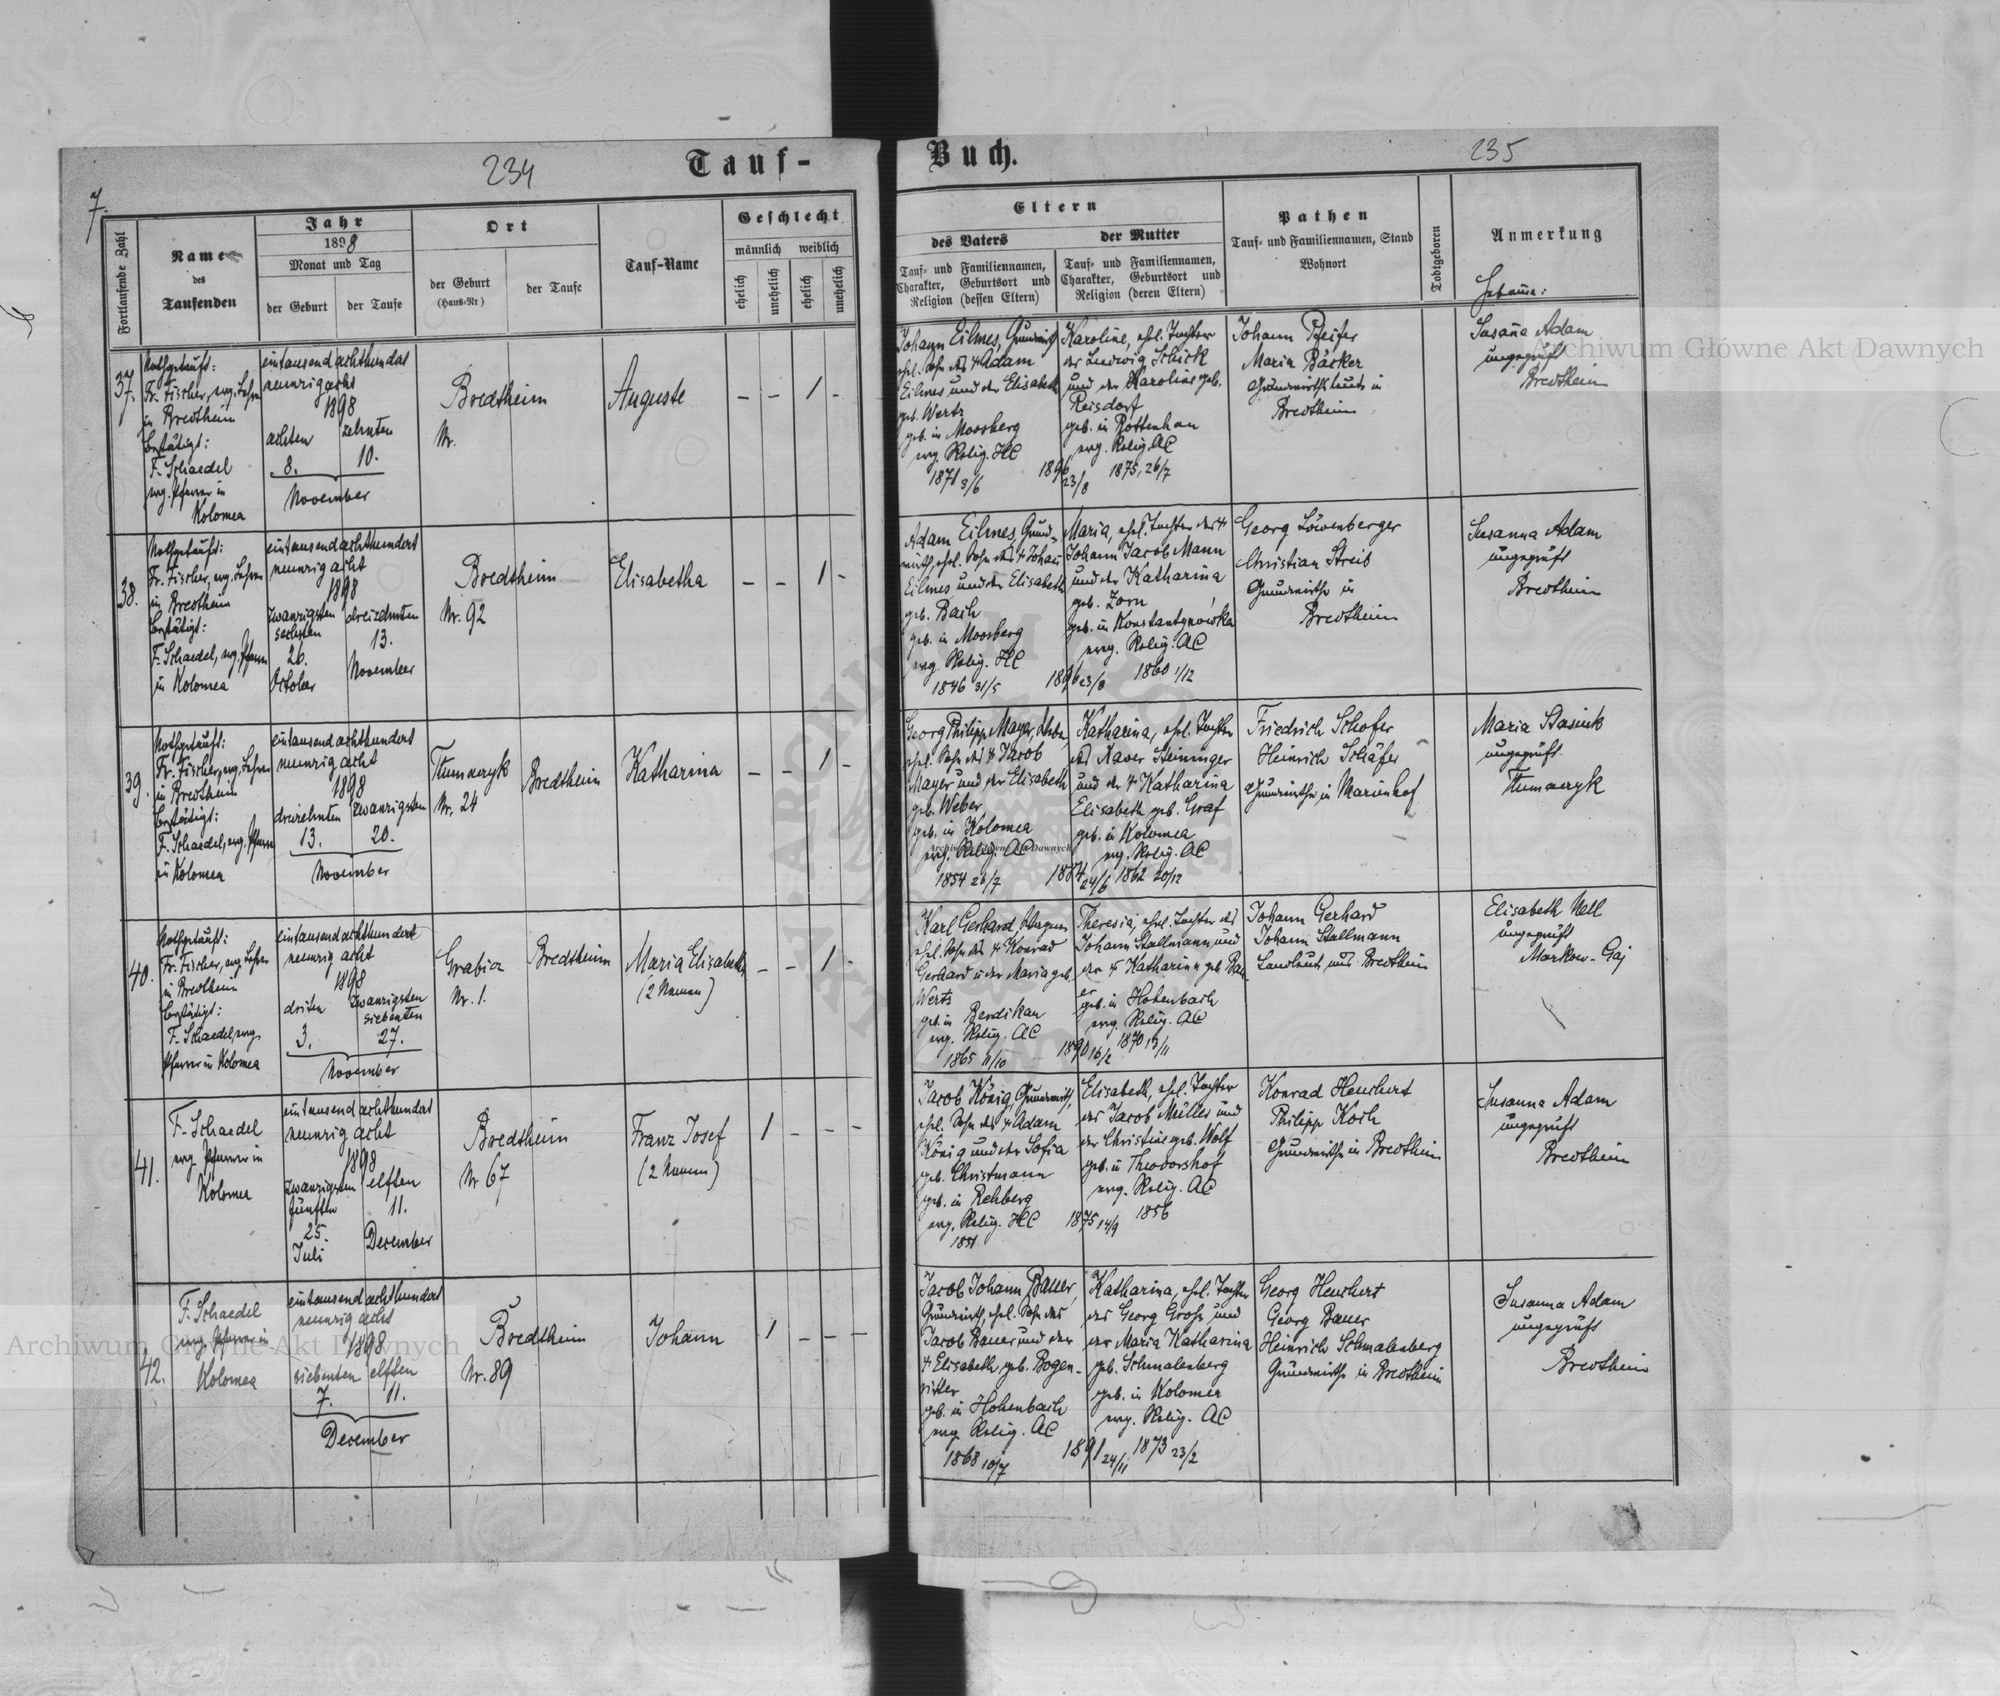 234
Tauf-
Buch.
235
7.
Fortlaufende Zahl
Name
des
Taufenden
Jahr
1898
Monat und Tag
der Geburt
der Taufe
Ort
der Geburt
(Haus-Nr)
der Taufe
Tauf-Name
Geschlecht
männlich
weiblich
ehelich
unehelich
ehelich
unehelich
Eltern
des Vaters
Tauf- und Familiennamen,
Charakter, Geburtsort und
Religion (dessen Eltern)
der Mutter
Tauf- und Familiennamen,
Charakter, Geburtsort und
Religion (deren Eltern)
Pathen
Tauf- und Familiennamen, Stand
Wohnort
Todtgeboren
Anmerkung
37.
Nothgetauft:
Fr. Fischer, evg. Lehrer
in Bredtheim
bestätigt:
F. Schaedel
evg. Pfarrer in
Kolomea
eintausend achthundert
neunzig acht
1898
achten
8.
zehnten
10.
November
Bredtheim
Nr.
Auguste
– – 1 –
Johann Eilmes, Grundwirth
ehl. Sohn des † Adam
Eilmes und der Elisabeth
geb. Wertz
geb. in Moosberg
evg. Relig. HC
1871 3/6
1896 23/8
Karoline, ehl. Tochter
des Ludwig Schick
und der Karoline geb.
Reisdorf
geb. in Rottenhan
evg. Relig. AC
1875, 26/7
Johann Pfeifer
Maria Bäcker
Grundwirthsleute in
Bredtheim
Hebame:
Susana Adam
ungeprüft
Bredtheim
38.
Nothgetauft:
Fr. Fischer, evg. Lehrer
in Bredtheim
bestätigt:
F. Schaedel, evg. Pfarrer
in Kolomea
eintausend achthundert
neunzig acht
1898
zwanzigsten
sechsten
26.
October
dreizehnten
13.
November
Bredtheim
Nr. 92
Elisabetha
– – 1 –
Adam Eilmes, Grund-
wirth, ehel. Sohn des † Johann
Eilmes und der Elisabeth
geb. Bach
geb. in Moosberg
evg. Relig. HC
1846 31/5
1896 23/8
Maria, ehel. Tochter des †
Johann Jacob Mann
und der Katharina
geb. Zorn
geb. in Konstantynówka
evg. Relig. AC
1860 1/12
Georg Löwenberger
Christian Streib
Grundwirthe in
Bredtheim
Susanna Adam
ungeprüft
Bredtheim
39.
Nothgetauft:
Fr. Fischer, evg. Lehrer
in Bredtheim
bestätigt:
F. Schaedel, evg. Pfarrer
in Kolomea
eintausend achthundert
neunzig acht
1898
dreizehnten
13.
zwanzigsten
20.
November
Tlumaczyk
Nr. 24
Bredtheim
Katharina
– – 1 –
Georg Philipp Mayer,
ehel. Sohn des † Jacob
Mayer und der Elisabeth
geb. Weber
geb. in Kolomea
evg. Relig. AC
1854 26/7
1884 24/6
Katharina, ehel. Tochter
des Xaver Steininger
und der † Katharina
Elisabeth geb. Graf
geb. in Kolomea
evg. Relig. AC
1862 20/12
Friedrich Schofer
Heinrich Schäfer
Grundwirthe in Marienhof
Maria Stasiuk
ungeprüft
Tlumaczyk
40.
Nothgetauft:
Fr. Fischer, evg. Lehrer
in Bredtheim
bestätigt:
F. Schaedel, evg.
Pfarrer in Kolomea
eintausend achthundert
neunzig acht
1898
driten
3.
zwanzigsten
siebenten
27.
November
Grabicz
Nr. 1.
Bredtheim
Maria Elisabeth
(2 Namen)
– – 1 –
Karl Gerhard, Wagner
ehl. Sohn des † Konrad
Gerhard u. der Maria geb.
Wertz
geb. in Berdikau
evg. Relig. AC
1865 11/10
1890 16/2
Theresia, ehel. Tochter des
Johann Stallmann und
der † Katharina geb. Bau
er
geb. in Hohenbach
evg. Relig. AC
1870 13/11
Johann Gerhard
Johann Stallmann
Landleute aus Bredtheim
Elisabeth Nell
ungeprüft
Markow-Gaj
41.
F. Schaedel
evg. Pfarrer in
Kolomea
eintausend achthundert
neunzig acht
1898
zwanzigsten
fünften
25.
Juli
elften
11.
December
Bredtheim
Nr 67
Franz Josef
(2 Namen)
1 – – –
Jacob König, Grundwirth,
ehl. Sohn des † Adam
König und der Sofia
geb. Christmann
geb. in Rehberg
evg. Relig. HC
1851
1875 14/9
Elisabeth, ehel. Tochter
des Jacob Müller und
der Christine geb. Wolf
geb. in Theodorshof
evg. Relig. AC
1856
Konrad Heuchert
Philipp Koch
Grundwirthe in Bredtheim
Susanna Adam
ungeprüft
Bredtheim
42.
F. Schaedel
evg. Pfarrer in
Kolomea
eintausend achthundert
neunzig acht
1898
siebenten
7.
elften
11.
December
Bredtheim
Nr. 89
Johann
1 – – –
Jacob Johann Bauer,
Grundwirth, ehel. Sohn des
Jacob Bauer und der
† Elisabeth geb. Bogen-
ritter
geb. in Hohenbach
evg. Relig. AC
1868 10/7
1891 24/11
Katharina, ehel. Tochter
des Georg Gross und
der Maria Katharina
geb. Schmalenberg
geb. in Kolomea
evg. Relig. AC
1873 23/2
Georg Heuchert
Georg Bauer
Heinrich Schmalenberg
Grundwirthe in Bredtheim
Susanna Adam
ungeprüft
Bredtheim
Archiwum Główne Akt Dawnych
Archiwum Główne Akt Dawnych
Archiwum Główne Akt Dawnych